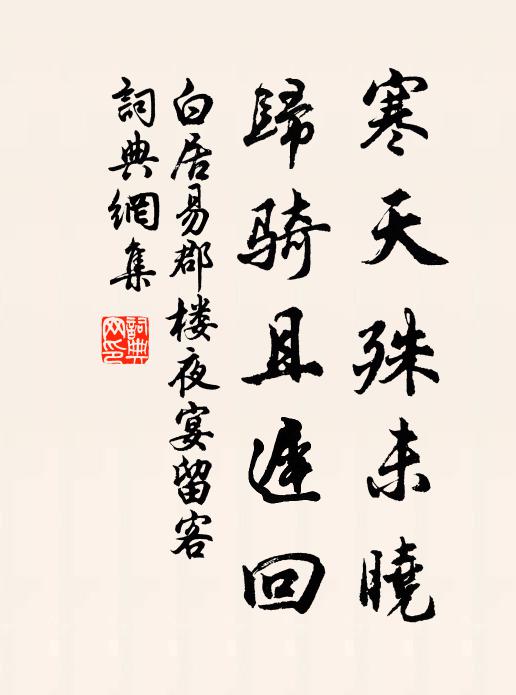 寒天殊未曉
歸騎且遲回
白居易郡楼夜宴留客
詞典網集
詞典网印